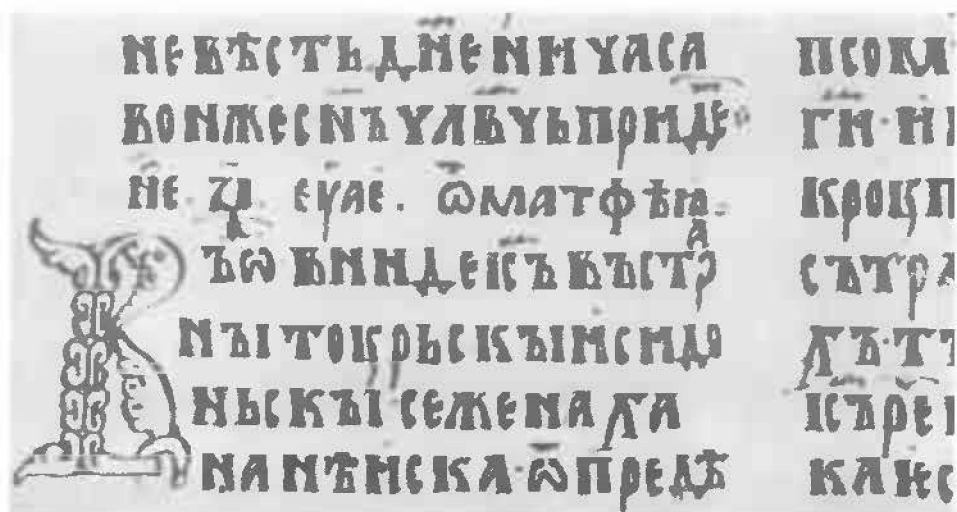 НЕВѢСТЬДНЕНИЧАСА
ВОНЖЕСНЪЧЛВЧЬПРИДЕ
НЕ. З҃І ЕУАЕ. ѾМАТФѢꙖ.
ЪѠ ВНИДЕІСЪВЪСТРⷶ
НЪІТОУРЬСКЪІИСИДО
НЬСКЪІСЕЖЕНАХА
НАНѢИСКА·ѾПРЕДѢ
ПСОМ
ГИ·Н
КРОУП
СЪТРА
ХЪ·Т
ІСЪРЕ